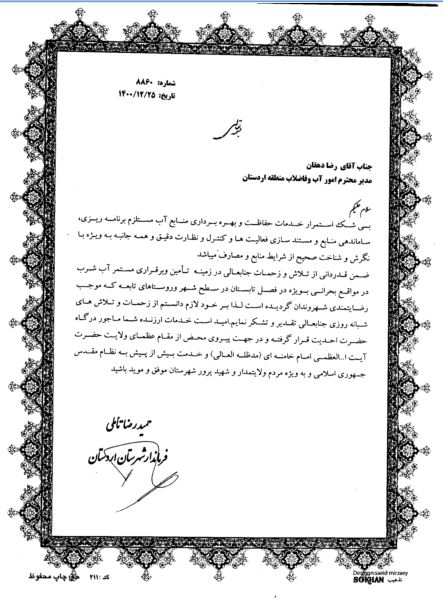 شماره: ۸۸۶۰
تاریخ: ۱۴۰۰/۱۲/۲۵
جناب آقای رضا دهقان
مدیر محترم امور آب وفاضلاب منطقه اردستان
سلام علیکم
بی شک استمرار خدمات حفاظت و بهره برداری منابع آب مستلزم برنامه ریزی،
ساماندهی منابع و مستند سازی فعالیت ها و کنترل و نظارت دقیق و همه جانبه به ویژه با
نگرش و شناخت صحیح از شرایط منابع و مصارف میباشد
ضمن قدردانی از تلاش و زحمات جنابعالی در زمینه تأمین وبرقراری مستمر آب شرب
در مواقع بحرانی بویژه در فصل تابستان در سطح شهر وروستاهای تابعه که موجب
رضایتمندی شهروندان گردیده است لذا بر خود لازم دانستم از زحمات و تلاش های
شبانه روزی جنابعالی تقدیر و تشکر نمایم.امید است خدمات ارزنده شما ماجور درگاه
حضرت احدیت قرار گرفته و در جهت پیروی محض از مقام عظمای ولایت حضرت
آیت ا...العظمی امام خامنه ای (مدظله العالی) و خدمت بیش از پیش به نظام مقدس
جمهوری اسلامی و به ویژه مردم ولایتمدار و شهید پرور شهرستان موفق و موید باشید
حمیدرضا تاملی
فرماندار شهرستان اردستان
کد: ۲۱۱ حق چاپ محفوظ
Design:saeid mirzaey
تذهیب SOKHAN